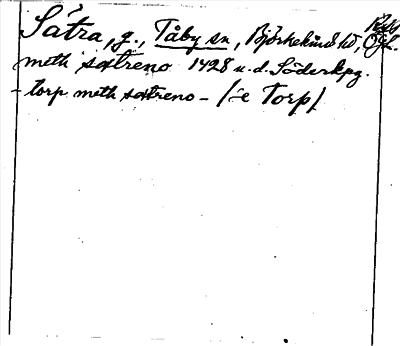 Sätra, g., Tåby sn, Björkekinds hd, Ögl.
meth sætreno 1428 u.d. Söderkpg.
- torp meth sætreno - /: e Torp/